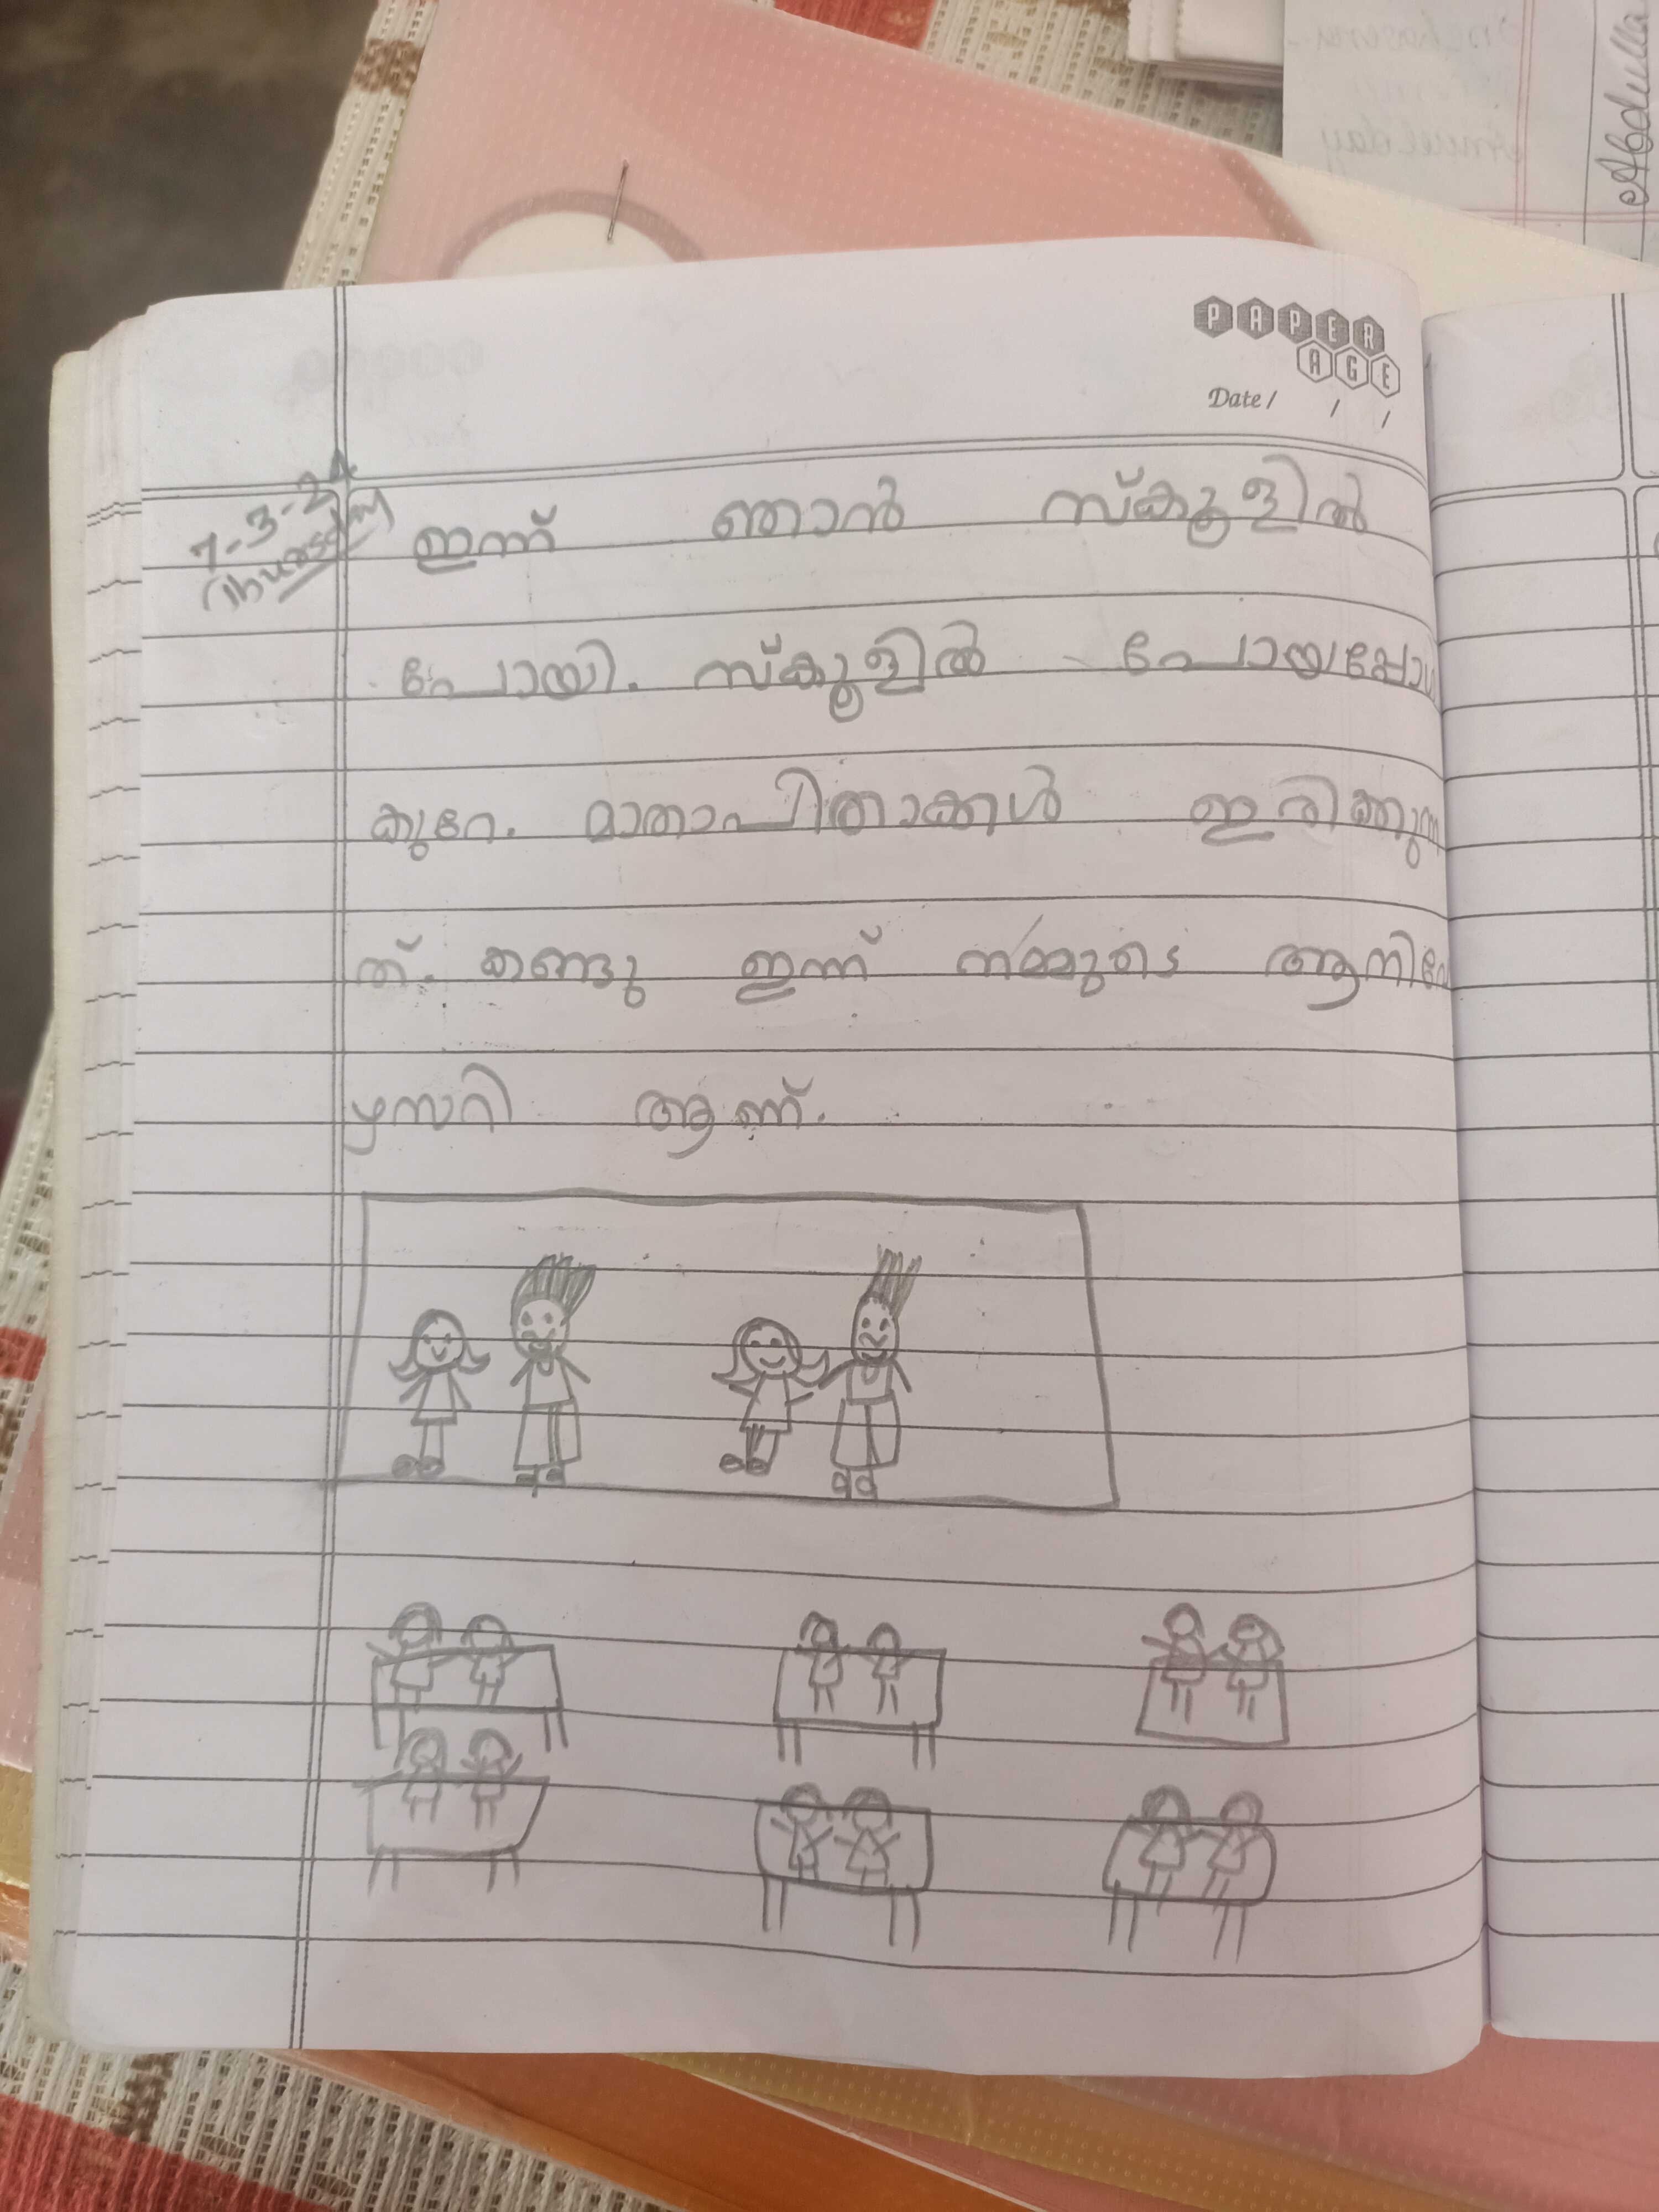 PAPER
AGE
Date / / /
7-3-24
Thursday
ഇന്ന് ഞാൻ സ്കൂളിൽ
പോയി. സ്കൂളിൽ പോയപ്പോൾ
കുറേ. മാതാപിതാക്കൾ ഇരിക്കുന്ന
ത്. കണ്ടു ഇന്ന് നമ്മുടെ ആനിവേ
ഴ്സറി ആണ്.
Abdulla